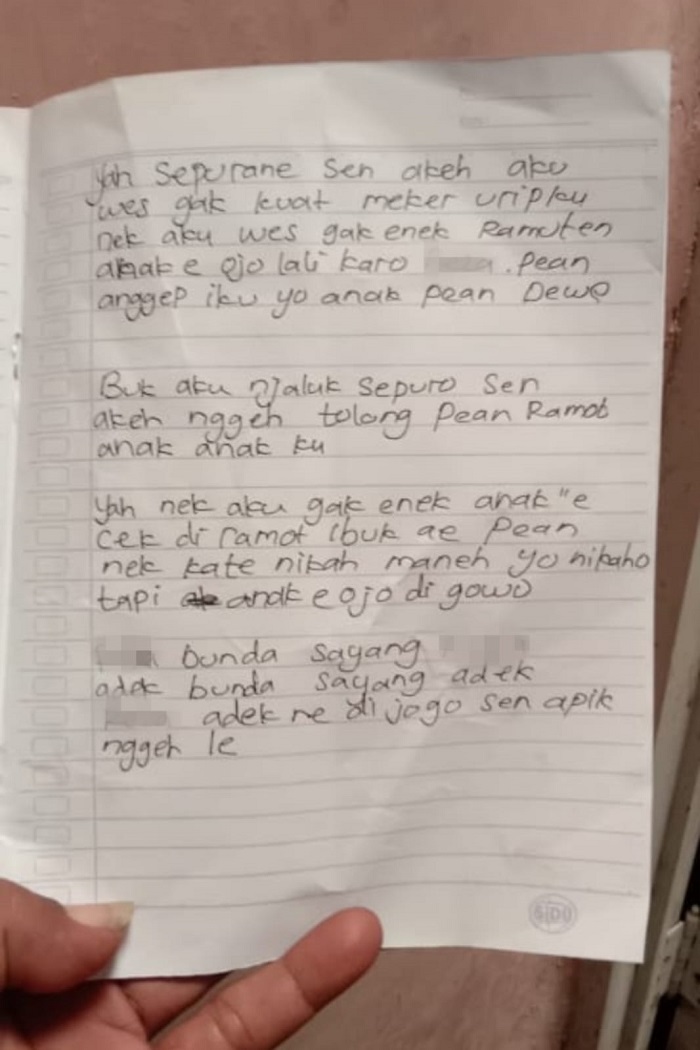 Yah Sepurane Sen akeh aku
wes gak kuat meker uripku
nek aku wes gak enek Ramuten
anak e ojo lali karo . Pean
anggep iku yo anak pean Dewe
Buk aku njaluk sepuro Sen
akeh nggeh tolong Pean Ramot
anak anak ku
Yah nek aku gak enek anak"e
cek di ramot ibuk ae Pean
nek kate nikah maneh yo nikaho
tapi anak e ojo di gowo
bunda sayang
adek bunda sayang adek
adek ne di jogo sen apik
nggeh le
SIDU